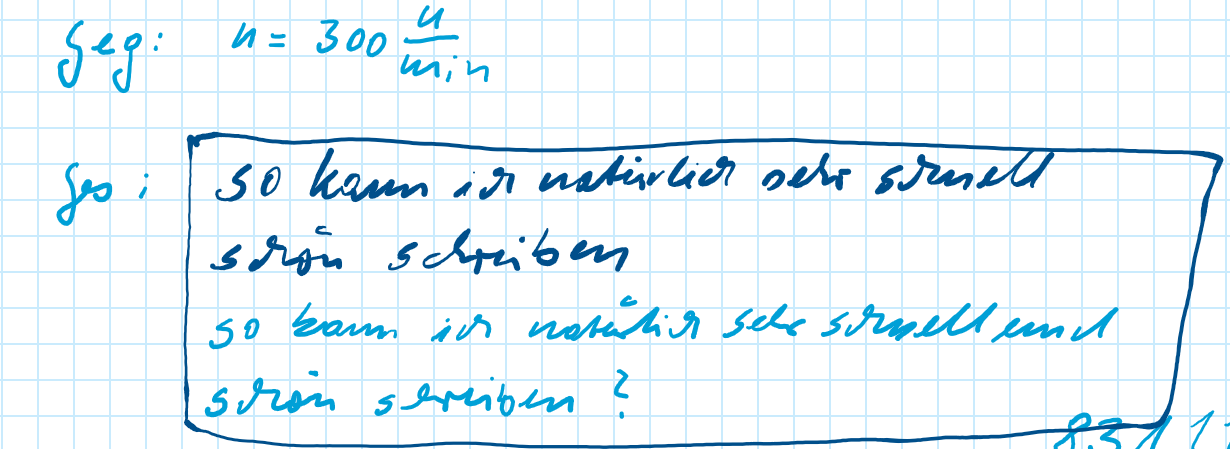 geg: n = 300 u/min
ges: so kann ich natürlich sehr schnell
schön schreiben
so kann ich natürlich sehr schnell und
schön schreiben?